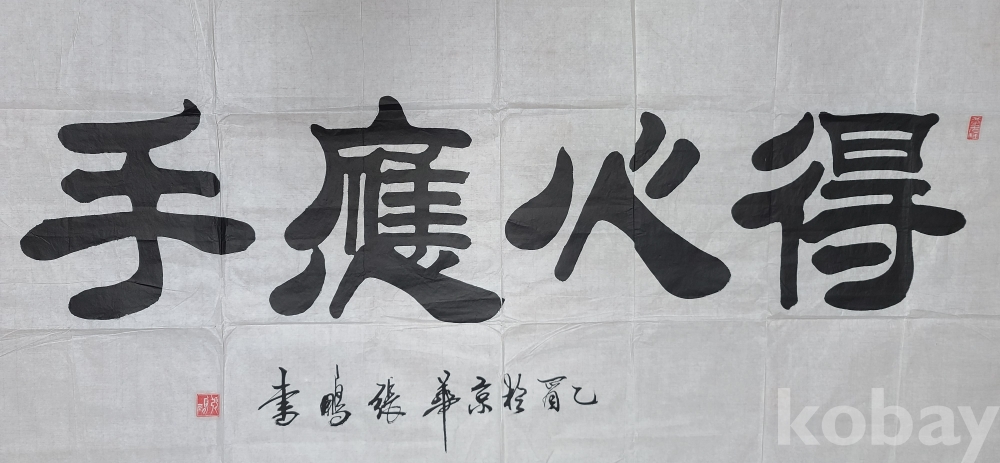 得心應手
乙酉於京華張鵬書
kobay